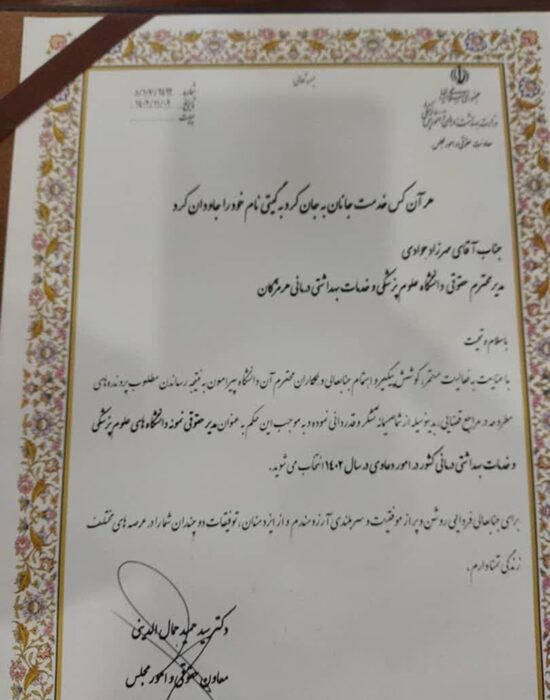 بسمه تعالی
جمهوری اسلامی ایران
وزارت بهداشت، درمان و آموزش پزشکی
معاونت حقوقی و امور مجلس
شماره
تاریخ
پیوست
هر آن کس خدمت جانان به جان کرد به گیتی نام خود را جاودان کرد
جناب آقای مهرزاد جوادی
مدیر محترم حقوقی دانشگاه علوم پزشکی و خدمات بهداشتی درمانی هرمزگان
با سلام و تحیت
با عنایت به فعالیت مستمر، کوشش پیگیر و اهتمام جنابعالی و همکاران محترم آن دانشگاه پیرامون به نتیجه رساندن مطلوب پرونده های
مطروحه در مراجع قضایی، بدینوسیله از شما صمیمانه تشکر و قدردانی نموده و به موجب این حکم به عنوان مدیر حقوقی نمونه دانشگاه های علوم پزشکی
و خدمات بهداشتی درمانی کشور در امور دعاوی در سال ۱۴۰۲ انتخاب می شوید.
برای جنابعالی فردایی روشن و پر از موفقیت و سربلندی آرزومندم و از ایزد منان، توفیقات دو چندان شما را در عرصه های مختلف
زندگی تمنا دارم.
دکتر سید حمید جمال الدینی
معاون حقوقی و امور مجلس